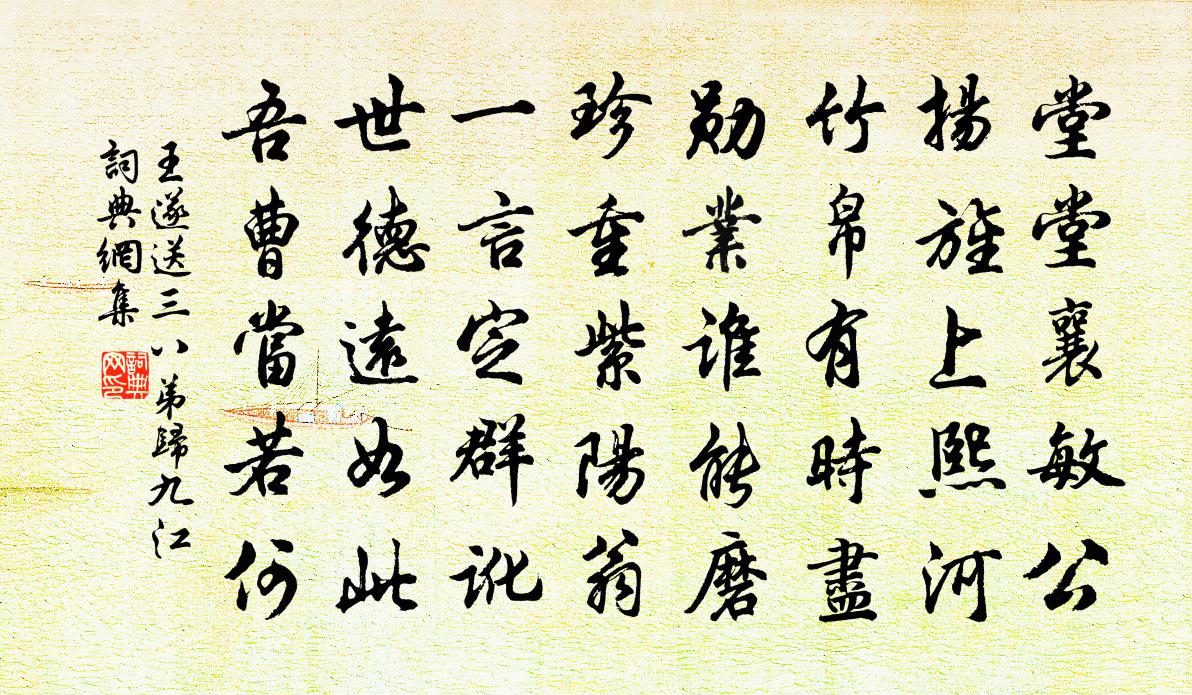 堂堂襄敏公
揚旌上熙河
竹帛有時盡
勛業誰能磨
珍重紫陽翁
一言定群訛
世德遠如此
吾曹當若何
王遂送三八弟歸九江
詞典網集
詞典网印